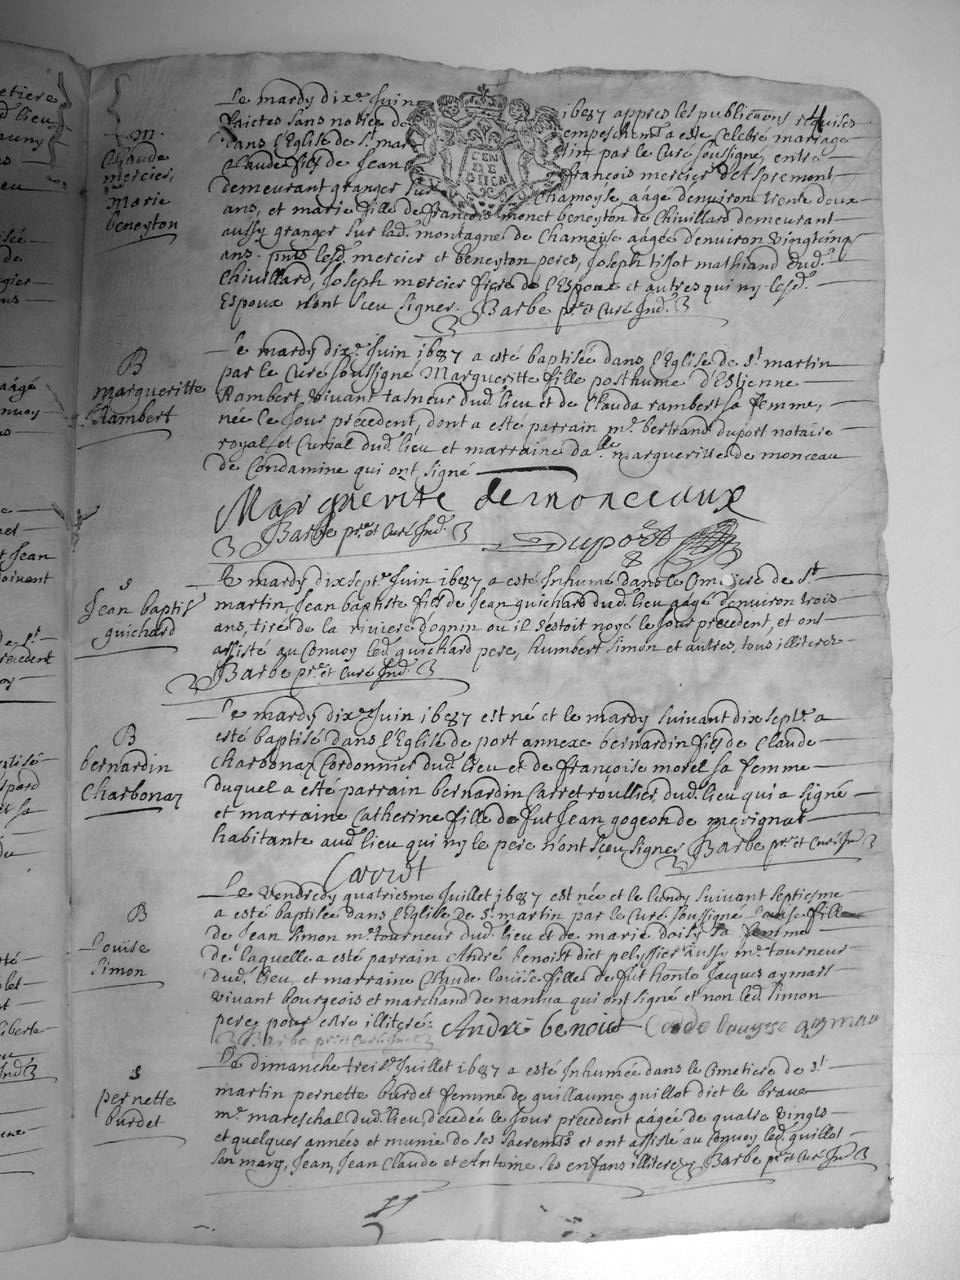 4
m.
Claude
mercier,
marie
beneyton
Le mardy dix.e Juin 1687 appres les publica͠ons requises
faictes sans notice de empeschem.t a esté Celebré mariage
dans l'Eglise de S.t martin par le Curé soussigné, entre
Claude fils de Jean françois mercier
demeurant granger sur Chamoyse, aâgé d'environ trente deux
ans, et marie fille de françois monet beneyton de Chivillard demeurant
aussy granger sur lad. montagne de Chamoise aâgée d'environ vingtcinq
ans. pnts lesd. mercier et beneyton peres, Joseph tissot mathiand dud.
Chivillard, Joseph mercier frere de l'Espoux et autres qui ny lesd.
Espoux n'ont sceu signer. Barbe p.tre et Curé Ind.
B
margueritte
Rambert
Le mardy dix.e Juin 1687 a esté baptisée dans l'Eglise de S.t martin
par le Curé soussigné Margueritte fille posthume d'Estienne
Rambert, vivant tasneur dud. lieu et de Clauda rambert sa femme,
née le Jour précedent, dont a esté parrain m.e bertrand duport notaire
royal et Curial dud. lieu et marraine da.lle margueritte de monceau
de Condamine qui ont signé
Marguerite demonceaux
Barbe p.tre et Curé Ind. Duport
S
Jean baptis
guichard
Le mardy dixsept.e Juin 1687 a esté Inhumé dans le Cimetiere de S.t
martin, Jean baptiste fils de Jean guichard dud. lieu aâgé d'environ trois
ans, tiré de la riviere d'ognin ou il s'estoit noyé le Jour precedent, et ont
assisté au Convoy led. guichard pere, humbert Simon et autres, tous illiterez
Barbe p.tre et Curé Ind.
B
bernardin
Charbonaz
Le mardy dix.e Juin 1687 est né et le mardy suivant dix sept.e a
esté baptisé dans l'Eglise de port annexe bernardin fils de Claude
Charbonaz Cordonnier dud. lieu et de françoise morel sa femme
duquel a esté parrain bernardin Carret roullier dud. lieu qui a signé
et marraine Catherine fille de fut Jean gogeon de merignat
habitante aud. lieu qui ny le pere n'ont sceu signer Barbe p.tre et Curé Ind.
Carret
B
Louise
Simon
Le Vendredy quatriesme Juillet 1687 est née et le Lundy suivant septiesme
a esté baptisée dans l'Eglise de S.t martin par le Curé soussigné Louise fille
de Jean Simon m.e tourneur dud. lieu et de marie sa femme
de laquelle a esté parrain André benoist dict pelyssier aussy m.e tourneur
dud. lieu, et marraine Claude louise fille de fut honle Jacques aymard
vivant bourgeois et marchand de nantua qui ont signé et non led. Simon
pere, pour estre illiteré. André benoist Clode louysse aymar
Barbe p.tre et Curé Ind.
S
pernette
burdet
Le dimanche treis.e Juillet 1687 a esté Inhumée dans le Cimetiere de S.t
martin pernette burdet femme de guillaume guillot dict le brave
m.e mareschal dud. lieu, décedée le Jour precedent aâgée de quatre vingts
et quelques années et munie de ses sacrem.ts et ont assisté au Convoy led. guillot
son mary, Jean, Jean Claude et Antoine ses enfans illiterez, Barbe p.tre et Curé Ind.